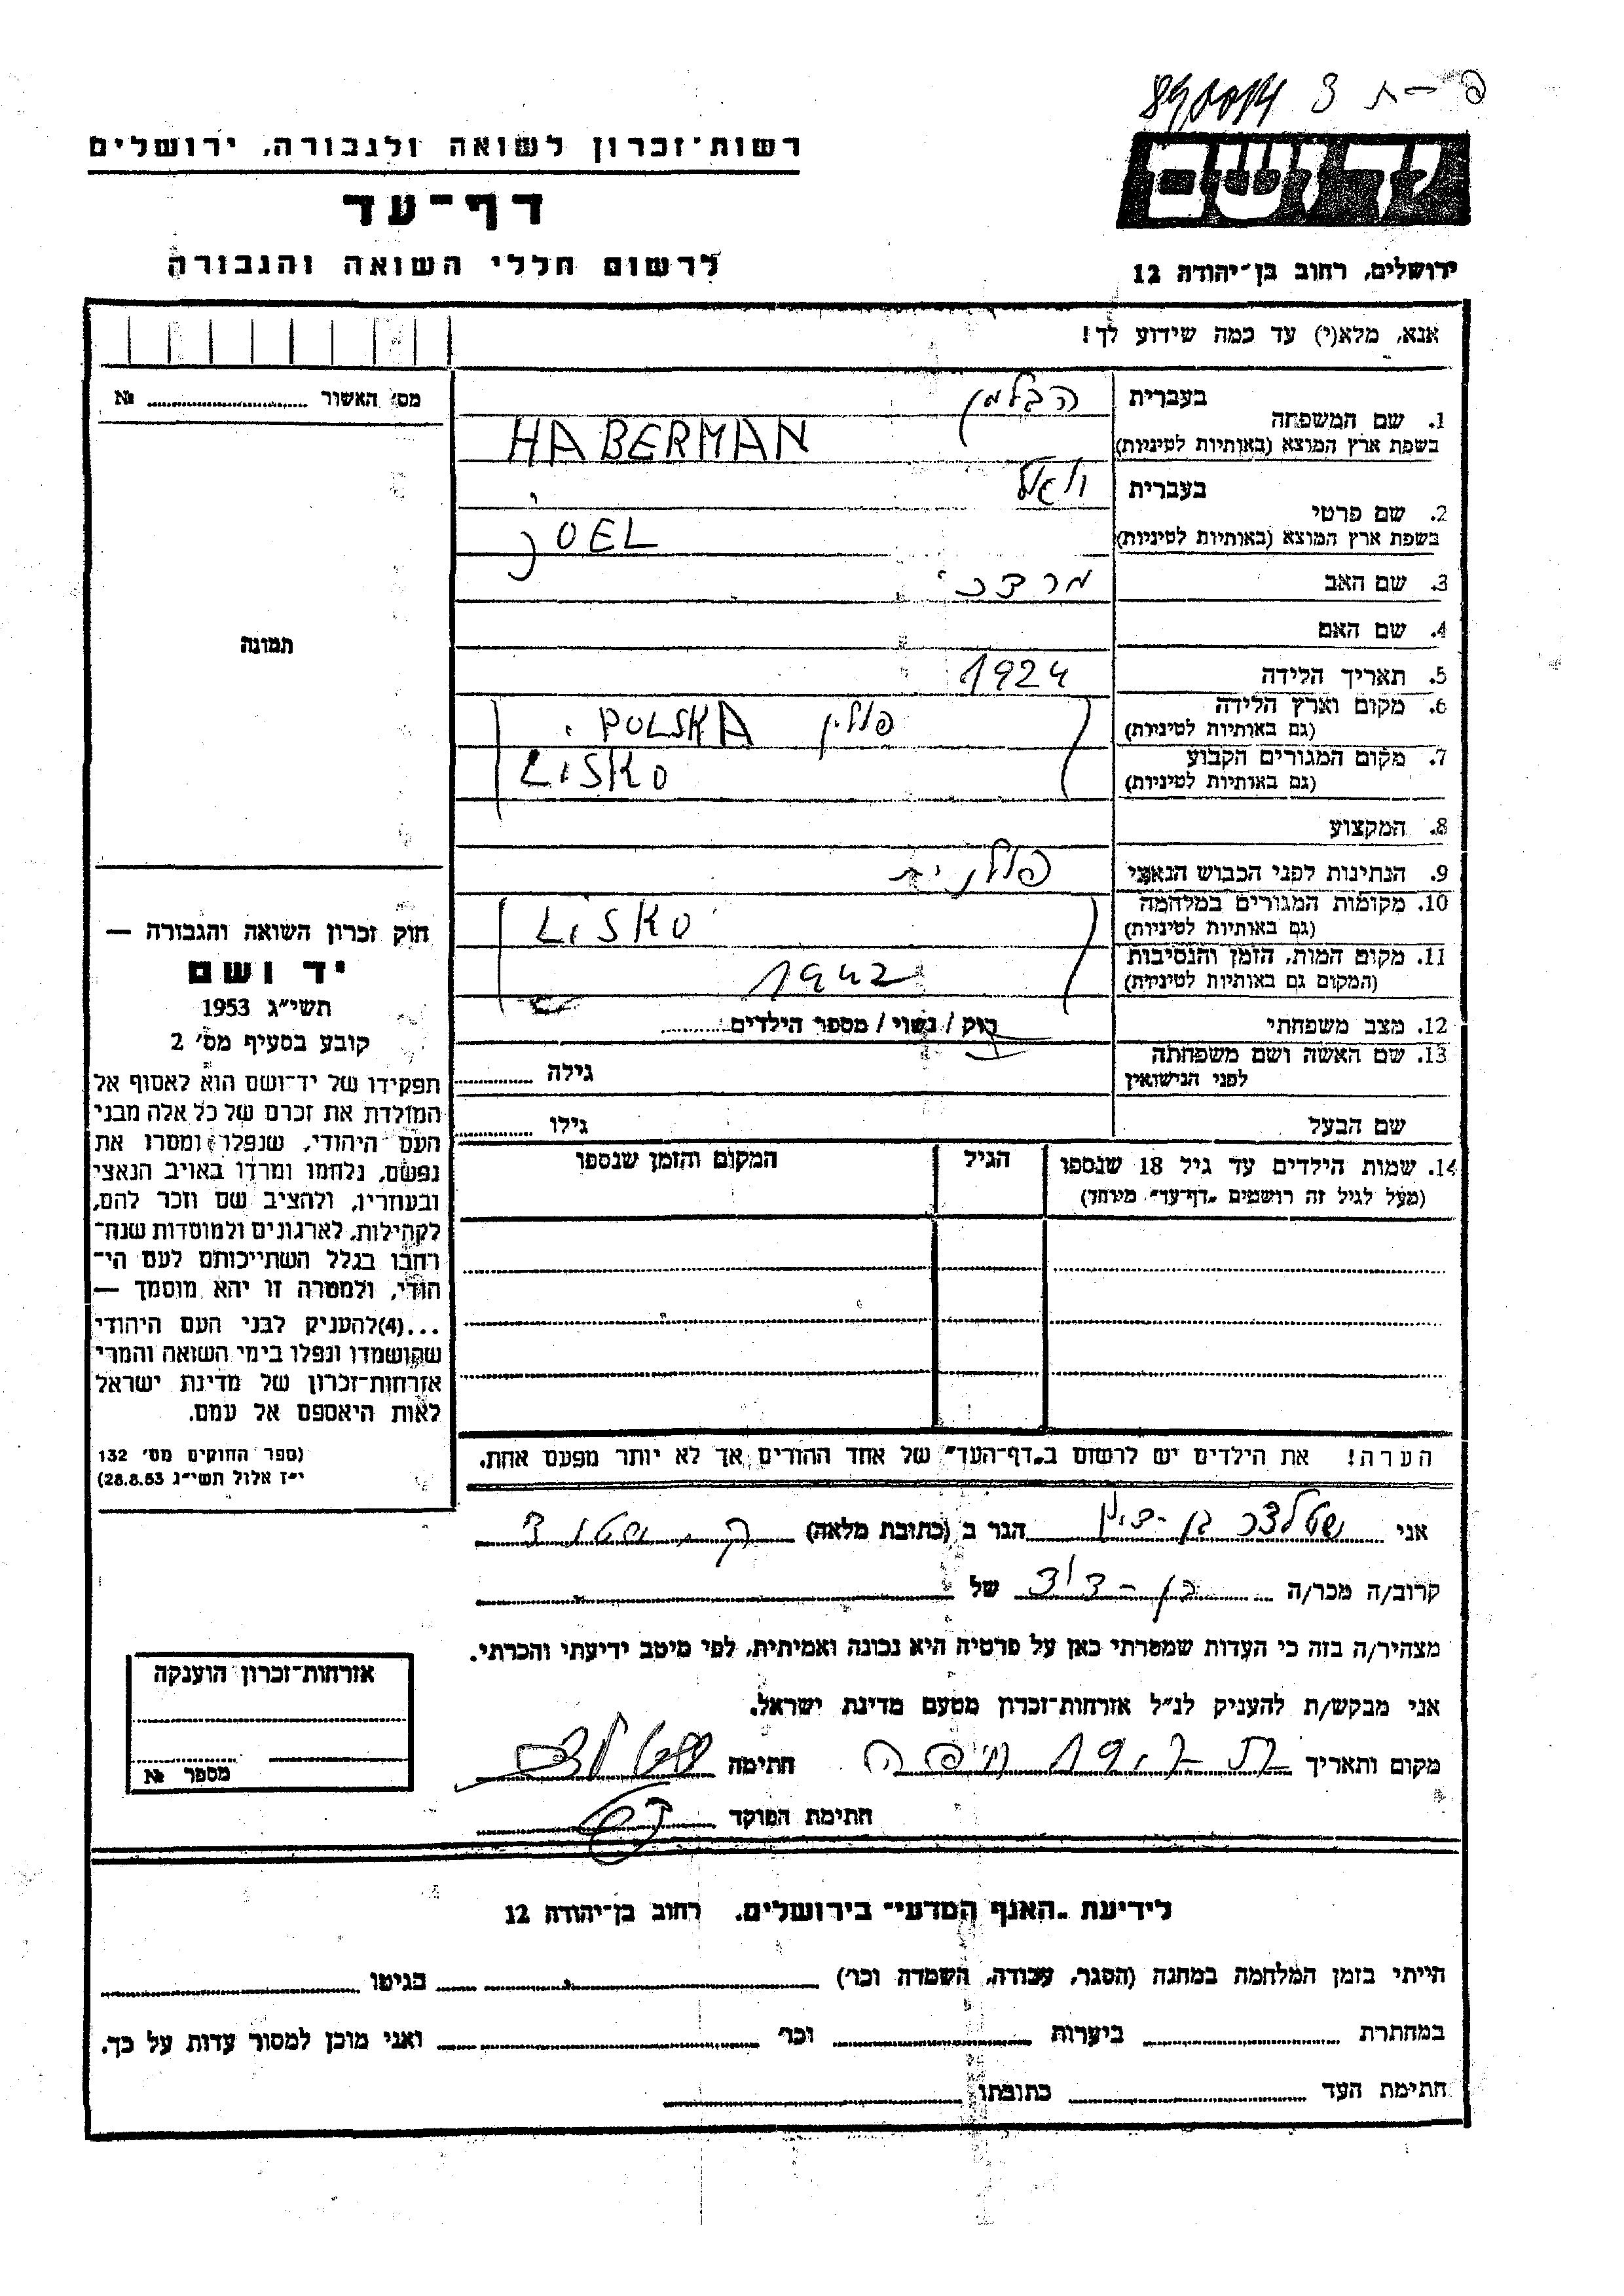 רשות־זכרון לשואה ולגבורה, ירושלים
דף־עד
לרשום חללי השואה והגבורה
ירושלים, רחוב בן־יהודה 12
אנא, מלא(י) עד כמה שידוע לך!
מס׳ האשור № 
1. שם המשפחה
בעברית הברמן
בשפת ארץ המוצא (באותיות לטיניות) HABERMAN
2. שם פרטי
בעברית יואל
בשפת ארץ המוצא (באותיות לטיניות) JOEL
3. שם האב מרדכי
4. שם האם
5. תאריך הלידה 1924
6. מקום וארץ הלידה פולין POLSKA
(גם באותיות לטיניות)
7. מקום המגורים הקבוע LISKO
(גם באותיות לטיניות)
8. המקצוע
9. הנתינות לפני הכבוש הנאצי פולנית
10. מקומות המגורים במלחמה LISKO
(גם באותיות לטיניות)
11. מקום המות, הזמן והנסיבות 1942
(המקום גם באותיות לטיניות)
12. מצב משפחתי רוק / נשוי / מספר הילדים
13. שם האשה ושם משפחתה גילה
לפני הנישואין
שם הבעל גילו
14. שמות הילדים עד גיל 18 שנספו הגיל המקום והזמן שנספו
(מעל לגיל זה רושמים „דף־עד״ מיוחד)
הערה! את הילדים יש לרשום ב„דף־העד״ של אחד ההורים אך לא יותר מפעם אחת.
תמונה
חוק זכרון השואה והגבורה —
יד ושם
תשי״ג 1953
קובע בסעיף מס׳ 2
תפקידו של יד־ושם הוא לאסוף אל
המולדת את זכרם של כל אלה מבני
העם היהודי, שנפלו ומסרו את
נפשם, נלחמו ומרדו באויב הנאצי
ובעוזריו, ולהציב שם וזכר להם,
לקהילות, לארגונים ולמוסדות שנח־
רבו בגלל השתייכותם לעם הי־
הודי, ולמטרה זו יהא מוסמך —
...(4)להעניק לבני העם היהודי
שהושמדו ונפלו בימי השואה והמרי
אזרחות־זכרון של מדינת ישראל
לאות היאספם אל עמם.
(ספר החוקים מס׳ 132
י״ז אלול תשי״ג 28.8.53)
אני שטלצר בן־ציון הגר ב (כתובת מלאה)
קרוב/ה מכר/ה בן־דוד של
מצהיר/ה בזה כי העדות שמסרתי כאן על פרטיה היא נכונה ואמיתית, לפי מיטב ידיעתי והכרתי.
אני מבקש/ת להעניק לנ״ל אזרחות־זכרון מטעם מדינת ישראל.
מקום ותאריך חתימה
חתימת הפוקד
אזרחות־זכרון הוענקה
מספר №
לידיעת „האגף המדעי״ בירושלים, רחוב בן־יהודה 12
הייתי בזמן המלחמה במחנה (הסגר, עבודה, השמדה וכו׳) בגיטו
במחתרת ביערות וכו׳ ואני מוכן למסור עדות על כך.
חתימת העד כתובתו